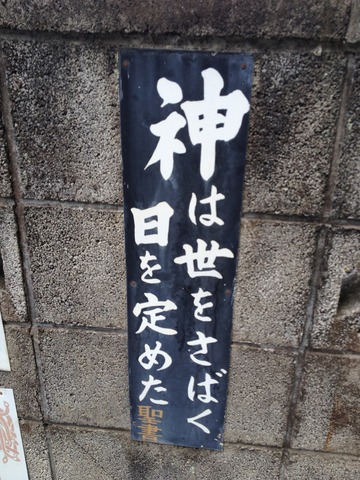 神は世をさばく
日を定めた
聖書